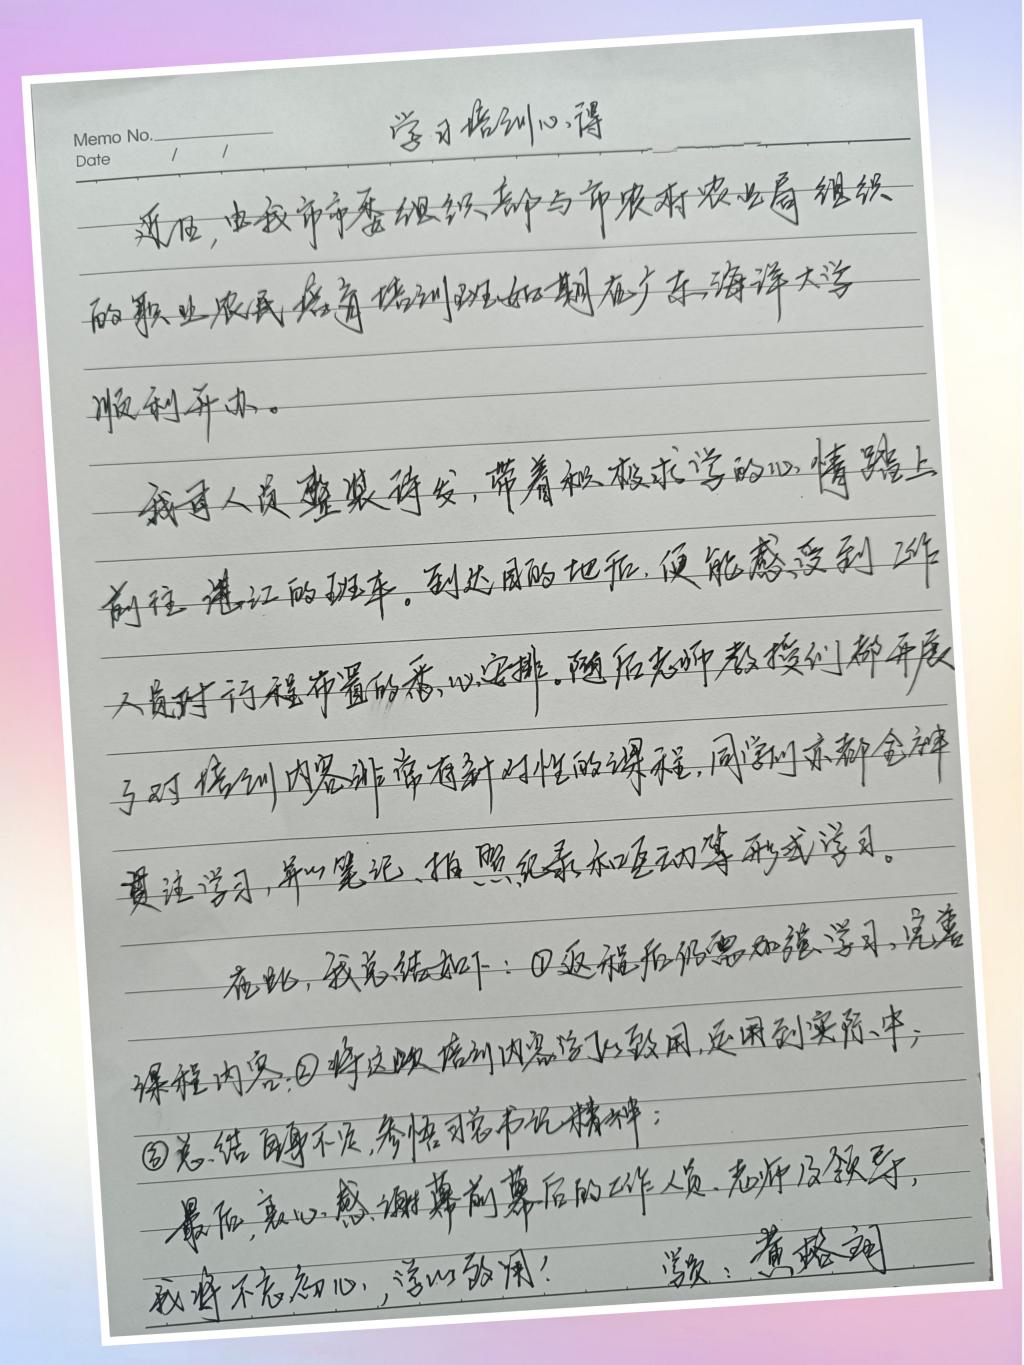 Memo No.
Date / /
学习培训心得
近日,由我市市委组织部与市农村农业局组织
的职业农民培育培训班如期在广东海洋大学
顺利开办。
我司人员整装待发,带着积极求学的心情踏上
前往湛江的班车。到达目的地后,便能感受到工作
人员对行程布置的悉心安排。随后老师教授们都开展
了对培训内容非常有针对性的课程,同学们亦都全神
贯注学习,并以笔记、拍照纪录和互动等形式学习。
在此,我总结如下:①返程后仍需加强学习、完善
课程内容;②将这次培训内容学以致用,运用到实际中;
③总结自身不足,参悟习总书记精神;
最后,衷心感谢幕前幕后的工作人员、老师及领导,
我将不忘初心,学以致用!
学员:黄